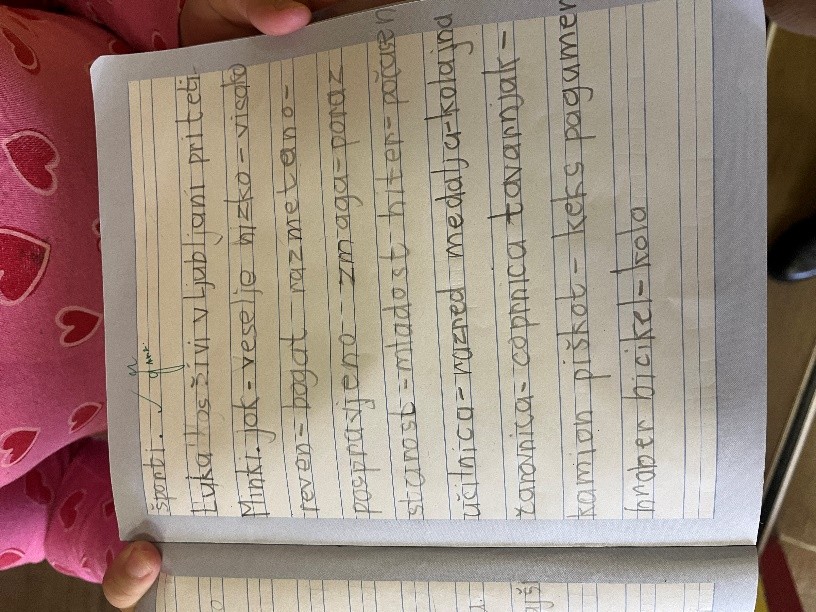 športi.
Luka živi v Ljubljani priteti
Minki. jok-veselje nizko-visoko
reven-bogat razmetano-
pospravljeno zmaga-poraz
starost-mladost hiter-počasen
učilnica-razred medalja-kolajna
čarovnica-coprnica tovornjak-
kamion piškot-keks pogumen
hraber bicikel-kolo